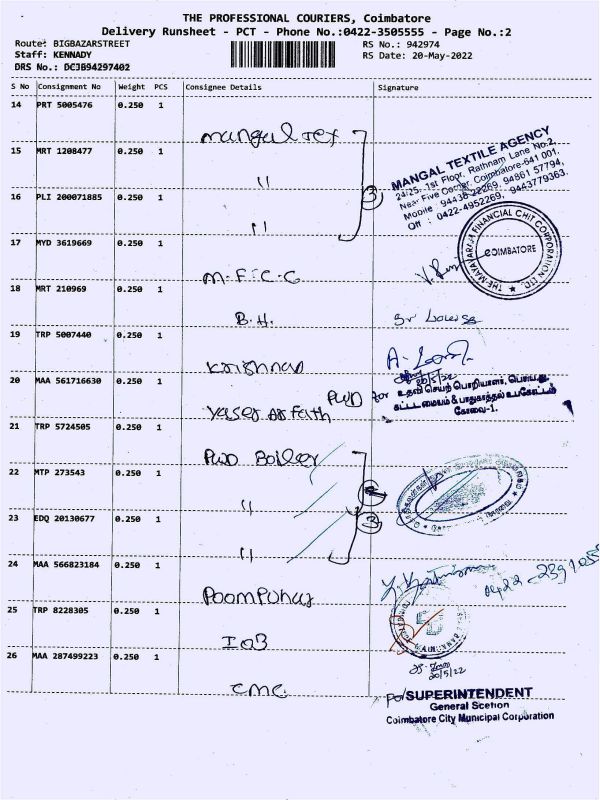 THE PROFESSIONAL COURIERS, Coimbatore
Delivery Runsheet - PCT - Phone No.:0422-3505555 - Page No.:2
Route: BIGBAZARSTREET
RS No.: 942974
Staff: KENNADY
RS Date: 20-May-2022
DRS No.: DCJB94297402
S No Consignment No Weight PCS Consignee Details Signature
14 PRT 5005476 0.250 1
Mangal Tex
15 MRT 1208477 0.250 1
"
16 PLI 200071885 0.250 1
"
3
MANGAL TEXTILE AGENCY
24/25, 1st Floor, Rathnam Lane No.2,
Near Five Corner, Coimbatore-641 001.
Mobile : 94438 22269, 94861 57794,
Off : 0422-4952269, 9443779363.
17 MYD 3619669 0.250 1
M.F.C.C
THE MAYAVARAM FINANCIAL CHIT CORPORATION LTD.
COIMBATORE
18 MRT 210969 0.250 1
B.H.
19 TRP 5007440 0.250 1
Krishnan
20/5/22
20 MAA 561716630 0.250 1
Yaser Arfath
PWD for
உதவி செயற் பொறியாளர், பொ.ப.து
கட்டடமையம் & பாதுகாத்தல் உபகோட்டம்
கோவை-1.
21 TRP 5724505 0.250 1
PWD Boiler
22 MTP 273543 0.250 1
"
23 EDQ 20130677 0.250 1
"
3
24 MAA 566823184 0.250 1
Poompuhar
25 TRP 8228305 0.250 1
IOB
20/5/22
26 MAA 287499223 0.250 1
CMC
SUPERINTENDENT
General Scetion
Coimbatore City Municipal Corporation